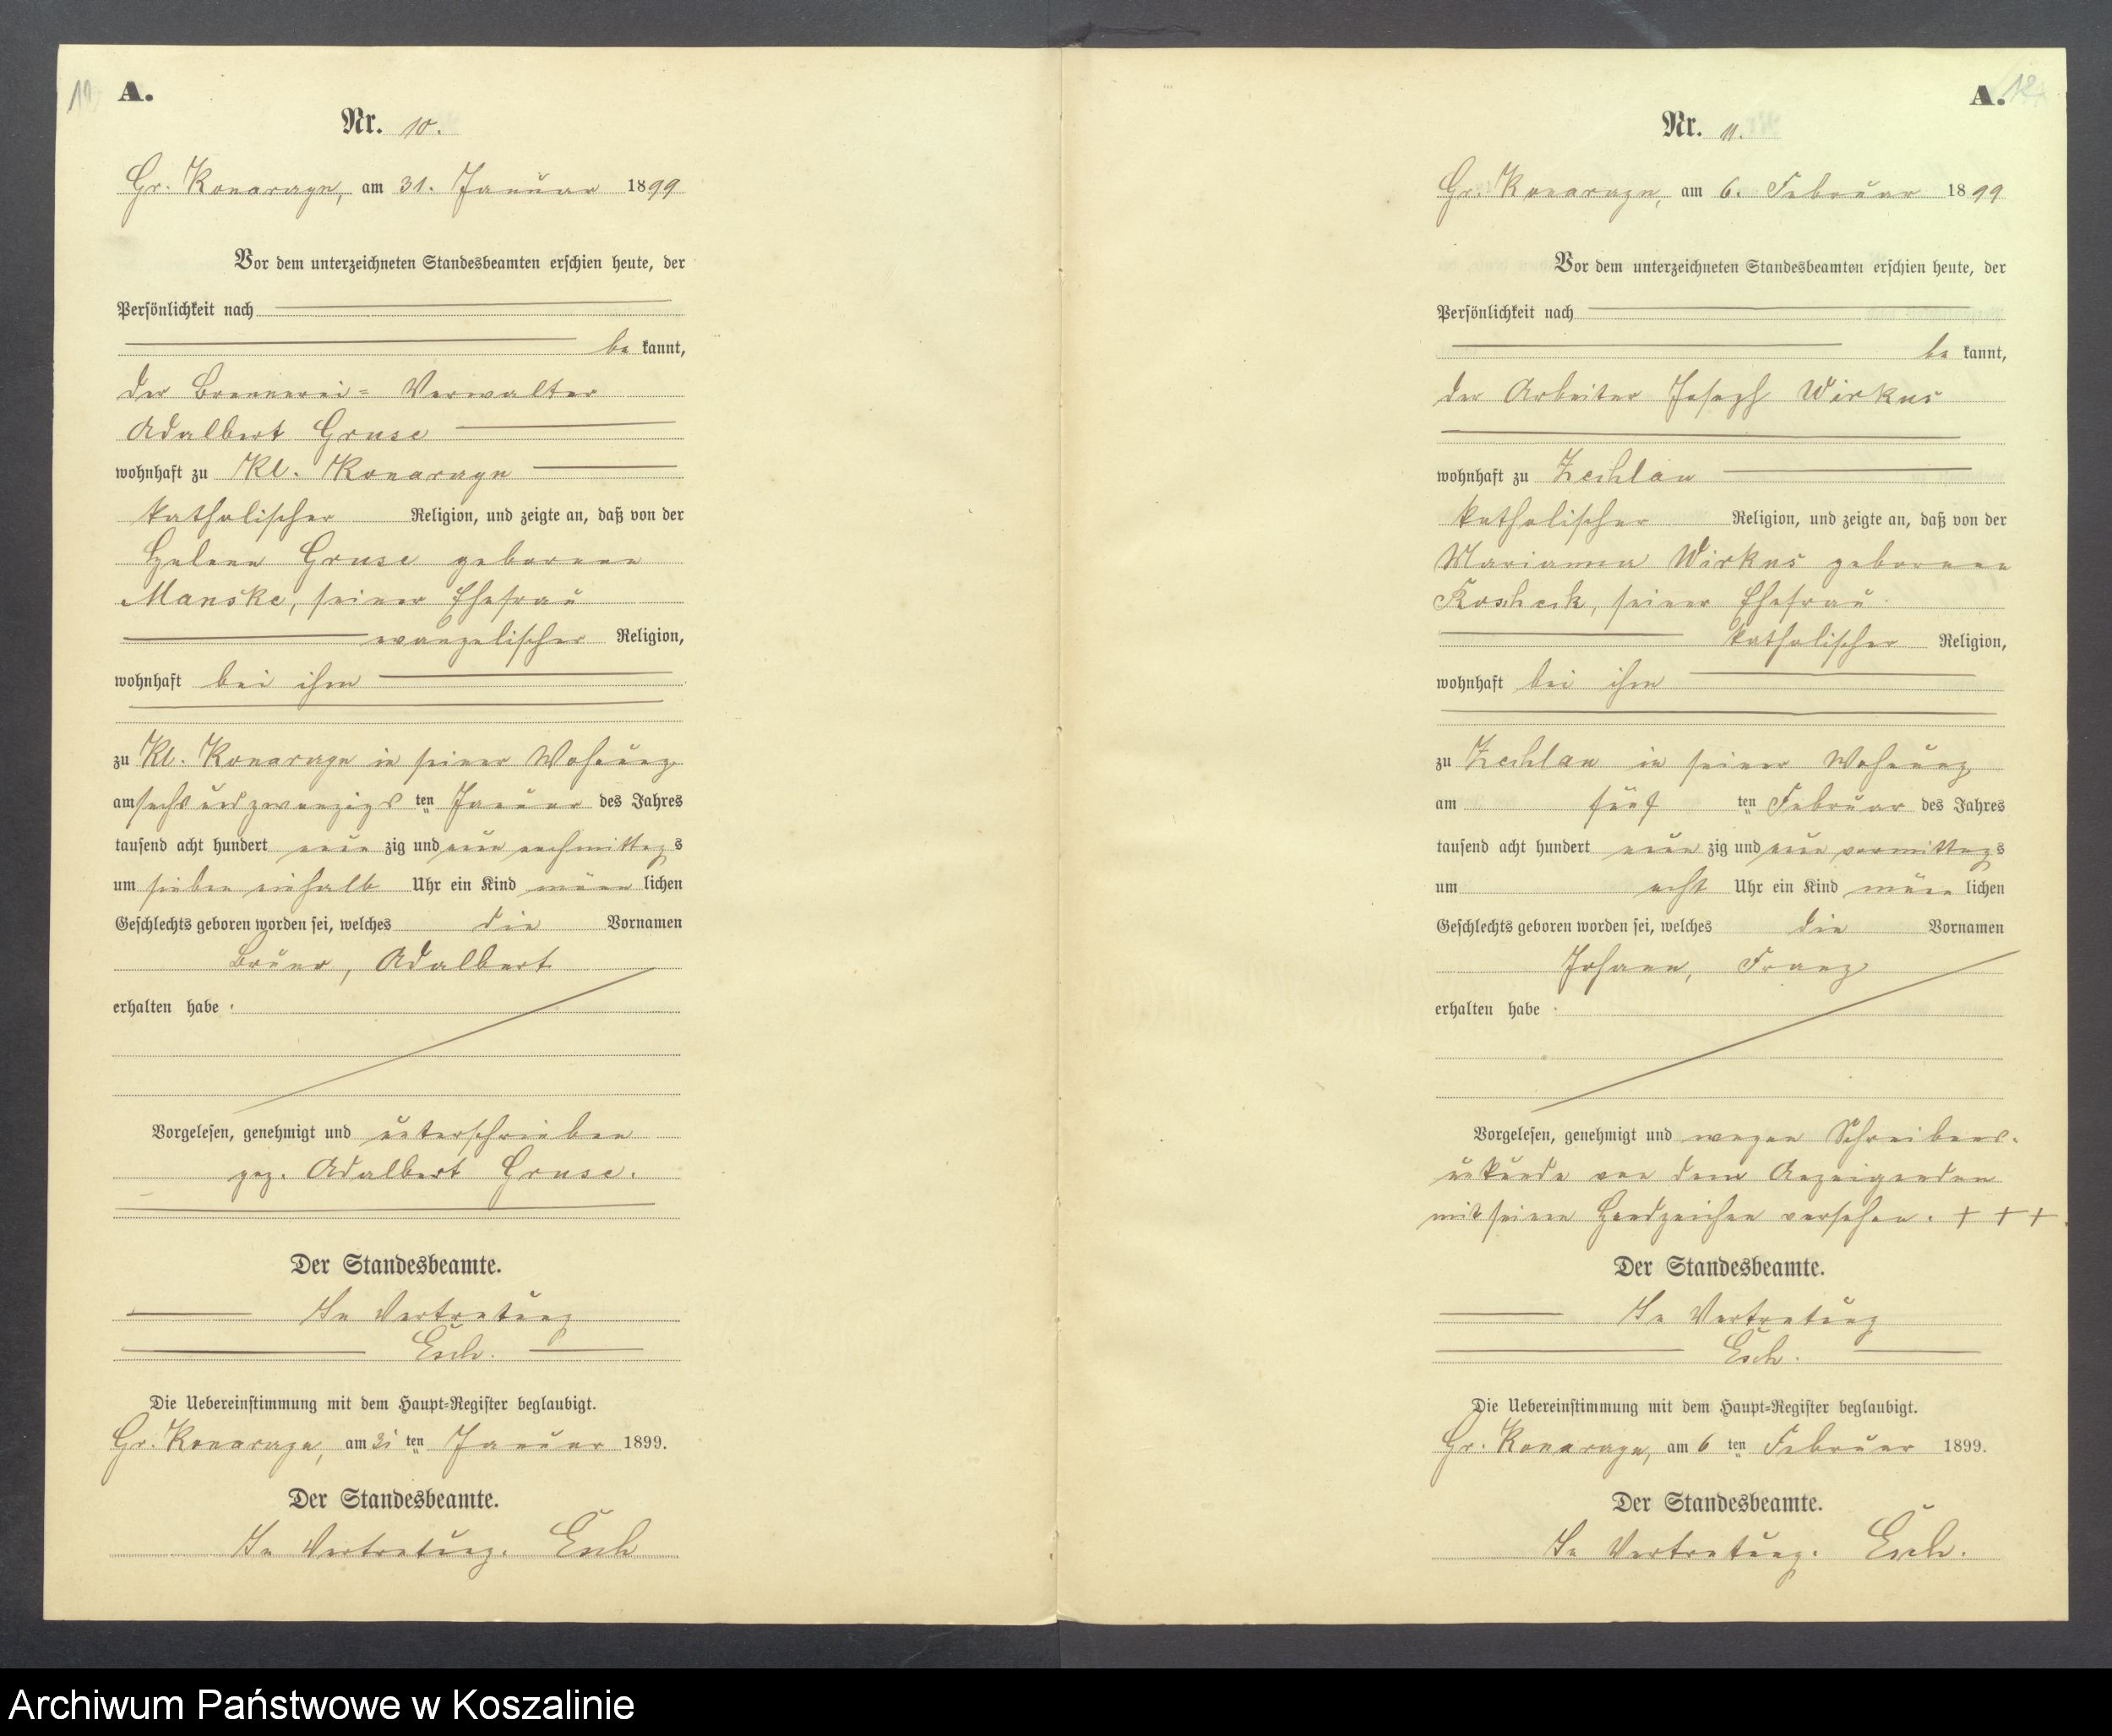 A.
Nr. 10.
Gr. Konarczyn, am 31. Januar 1899
Vor dem unterzeichneten Standesbeamten erschien heute, der
Persönlichkeit nach
be kannt,
der Brennerei-Verwalter
Adalbert Gruse
wohnhaft zu Kl. Konarczyn
katholischer Religion, und zeigte an, daß von der
Helene Gruse geborenen
Manske, seiner Ehefrau
evangelischer Religion,
wohnhaft bei ihm
zu Kl. Konarczyn in seiner Wohnung
am sechs und zwanzigs ten Januar des Jahres
tausend acht hundert neun zig und neun nachmittag s
um sieben einhalb Uhr ein Kind männ lichen
Geschlechts geboren worden sei, welches die Vornamen
Bruno, Adalbert
erhalten habe.
Vorgelesen, genehmigt und unterschrieben
gez. Adalbert Gruse.
Der Standesbeamte.
In Vertretung
Esch.
Die Uebereinstimmung mit dem Haupt-Register beglaubigt.
Gr. Konarczyn, am 31 ten Januar 1899.
Der Standesbeamte.
In Vertretung. Esch
A. 12
Nr. 11.
Gr. Konarczyn, am 6. Februar 1899
Vor dem unterzeichneten Standesbeamten erschien heute, der
Persönlichkeit nach
be kannt,
der Arbeiter Joseph Wirkus
wohnhaft zu Zechlau
katholischer Religion, und zeigte an, daß von der
Marianna Wirkus geborenen
seiner Ehefrau
katholischer Religion,
wohnhaft bei ihm
zu Zechlau in seiner Wohnung
am fünf ten Februar des Jahres
tausend acht hundert neun zig und neun vormittag s
um acht Uhr ein Kind männ lichen
Geschlechts geboren worden sei, welches die Vornamen
Johann, Franz
erhalten habe.
Vorgelesen, genehmigt und wegen Schreibens-
unkunde von dem Anzeigenden
mit seinem Handzeichen versehen. + + +
Der Standesbeamte.
In Vertretung
Esch.
Die Uebereinstimmung mit dem Haupt-Register beglaubigt.
Gr. Konarczyn, am 6 ten Februar 1899.
Der Standesbeamte.
In Vertretung. Esch.
Archiwum Państwowe w Koszalinie